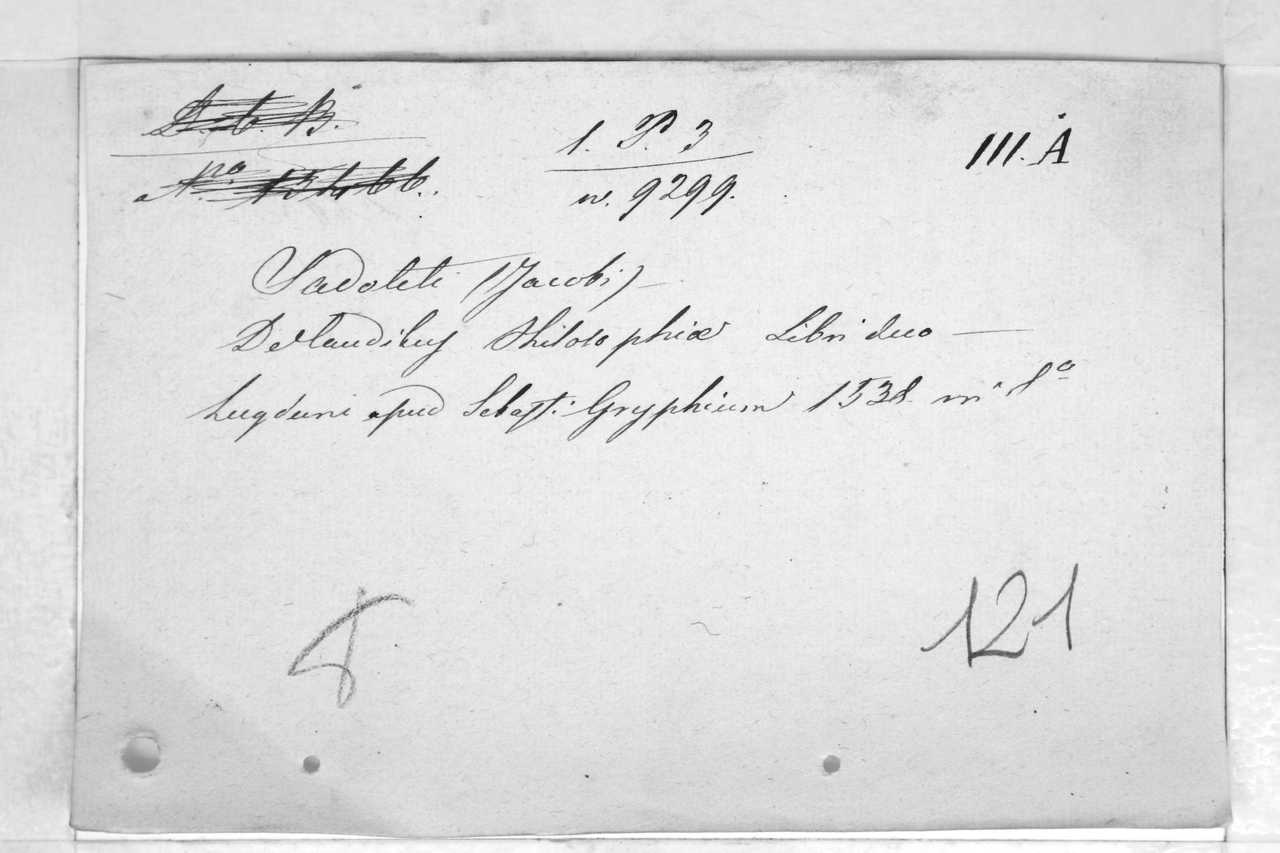 D. b. B.
Nro 13466.
1. P. 3
n. 9299.
III. A
Sadoleti (Jacobi)
De laudibus Philosophiæ Libri duo —
Lugduni apud Sebasti: Gryphium 1538 in 8o
121